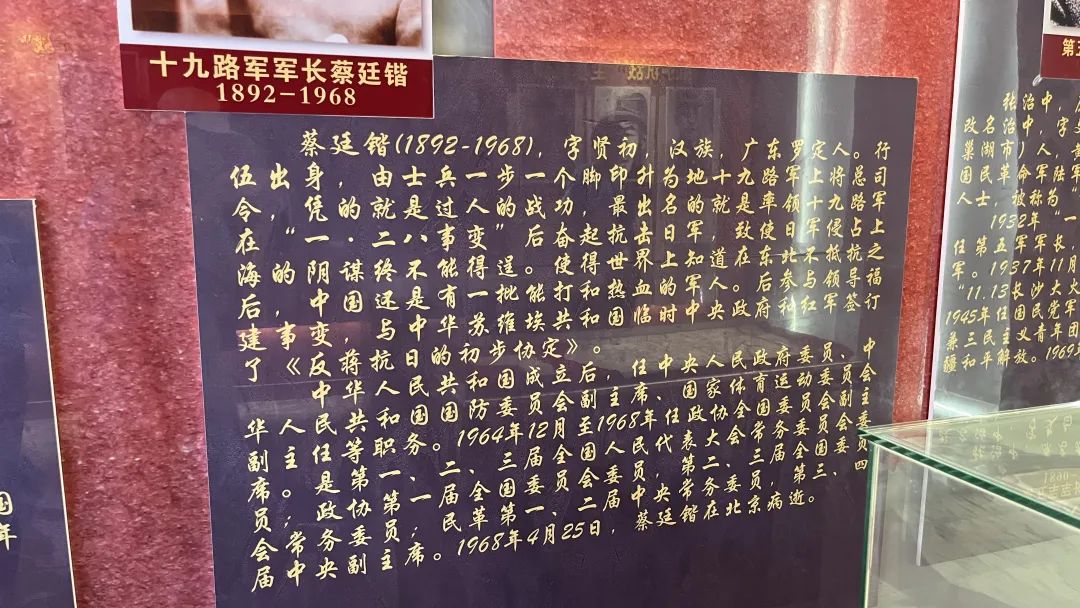 十九路军军长蔡廷锴
1892-1968
蔡廷锴(1892-1968)，字贤初，汉族，广东罗定人。行
伍出身，由士兵一步一个脚印升为地十九路军上将总司
令，凭的就是过人的战功，最出名的就是率领十九路军
在“一·二八事变”后奋起抗击日军，致使日军侵占上
海的阴谋终不能得逞。使得世界上知道在东北不抵抗之
后，中国还是有一批能打和热血的军人。后参与领导福
建事变，与中华苏维埃共和国临时中央政府和红军签订
了《反蒋抗日的初步协定》。
中华人民共和国成立后，任中央人民政府委员、中
华人民共和国国防委员会副主席、国家体育运动委员会
副主任等职务。1964年12月至1968年任政协全国委员会副主
席。是第一、二、三届全国人民代表大会常务委员会委
员；政协第一届全国委员会委员，第二、三届全国委员
会常务委员；民革第一、二届中央常务委员，第三、四
届中央副主席。1968年4月25日，蔡廷锴在北京病逝。
张治中，
改名治中，字
巢湖市）人，
国民革命军陆军
人士，被称为“
1932年“一
任第五军军长，
军。1937年11月
“11.13长沙大火
1945年任国民党军
兼三民主义青年团
疆和平解放。1969
国
年
第五